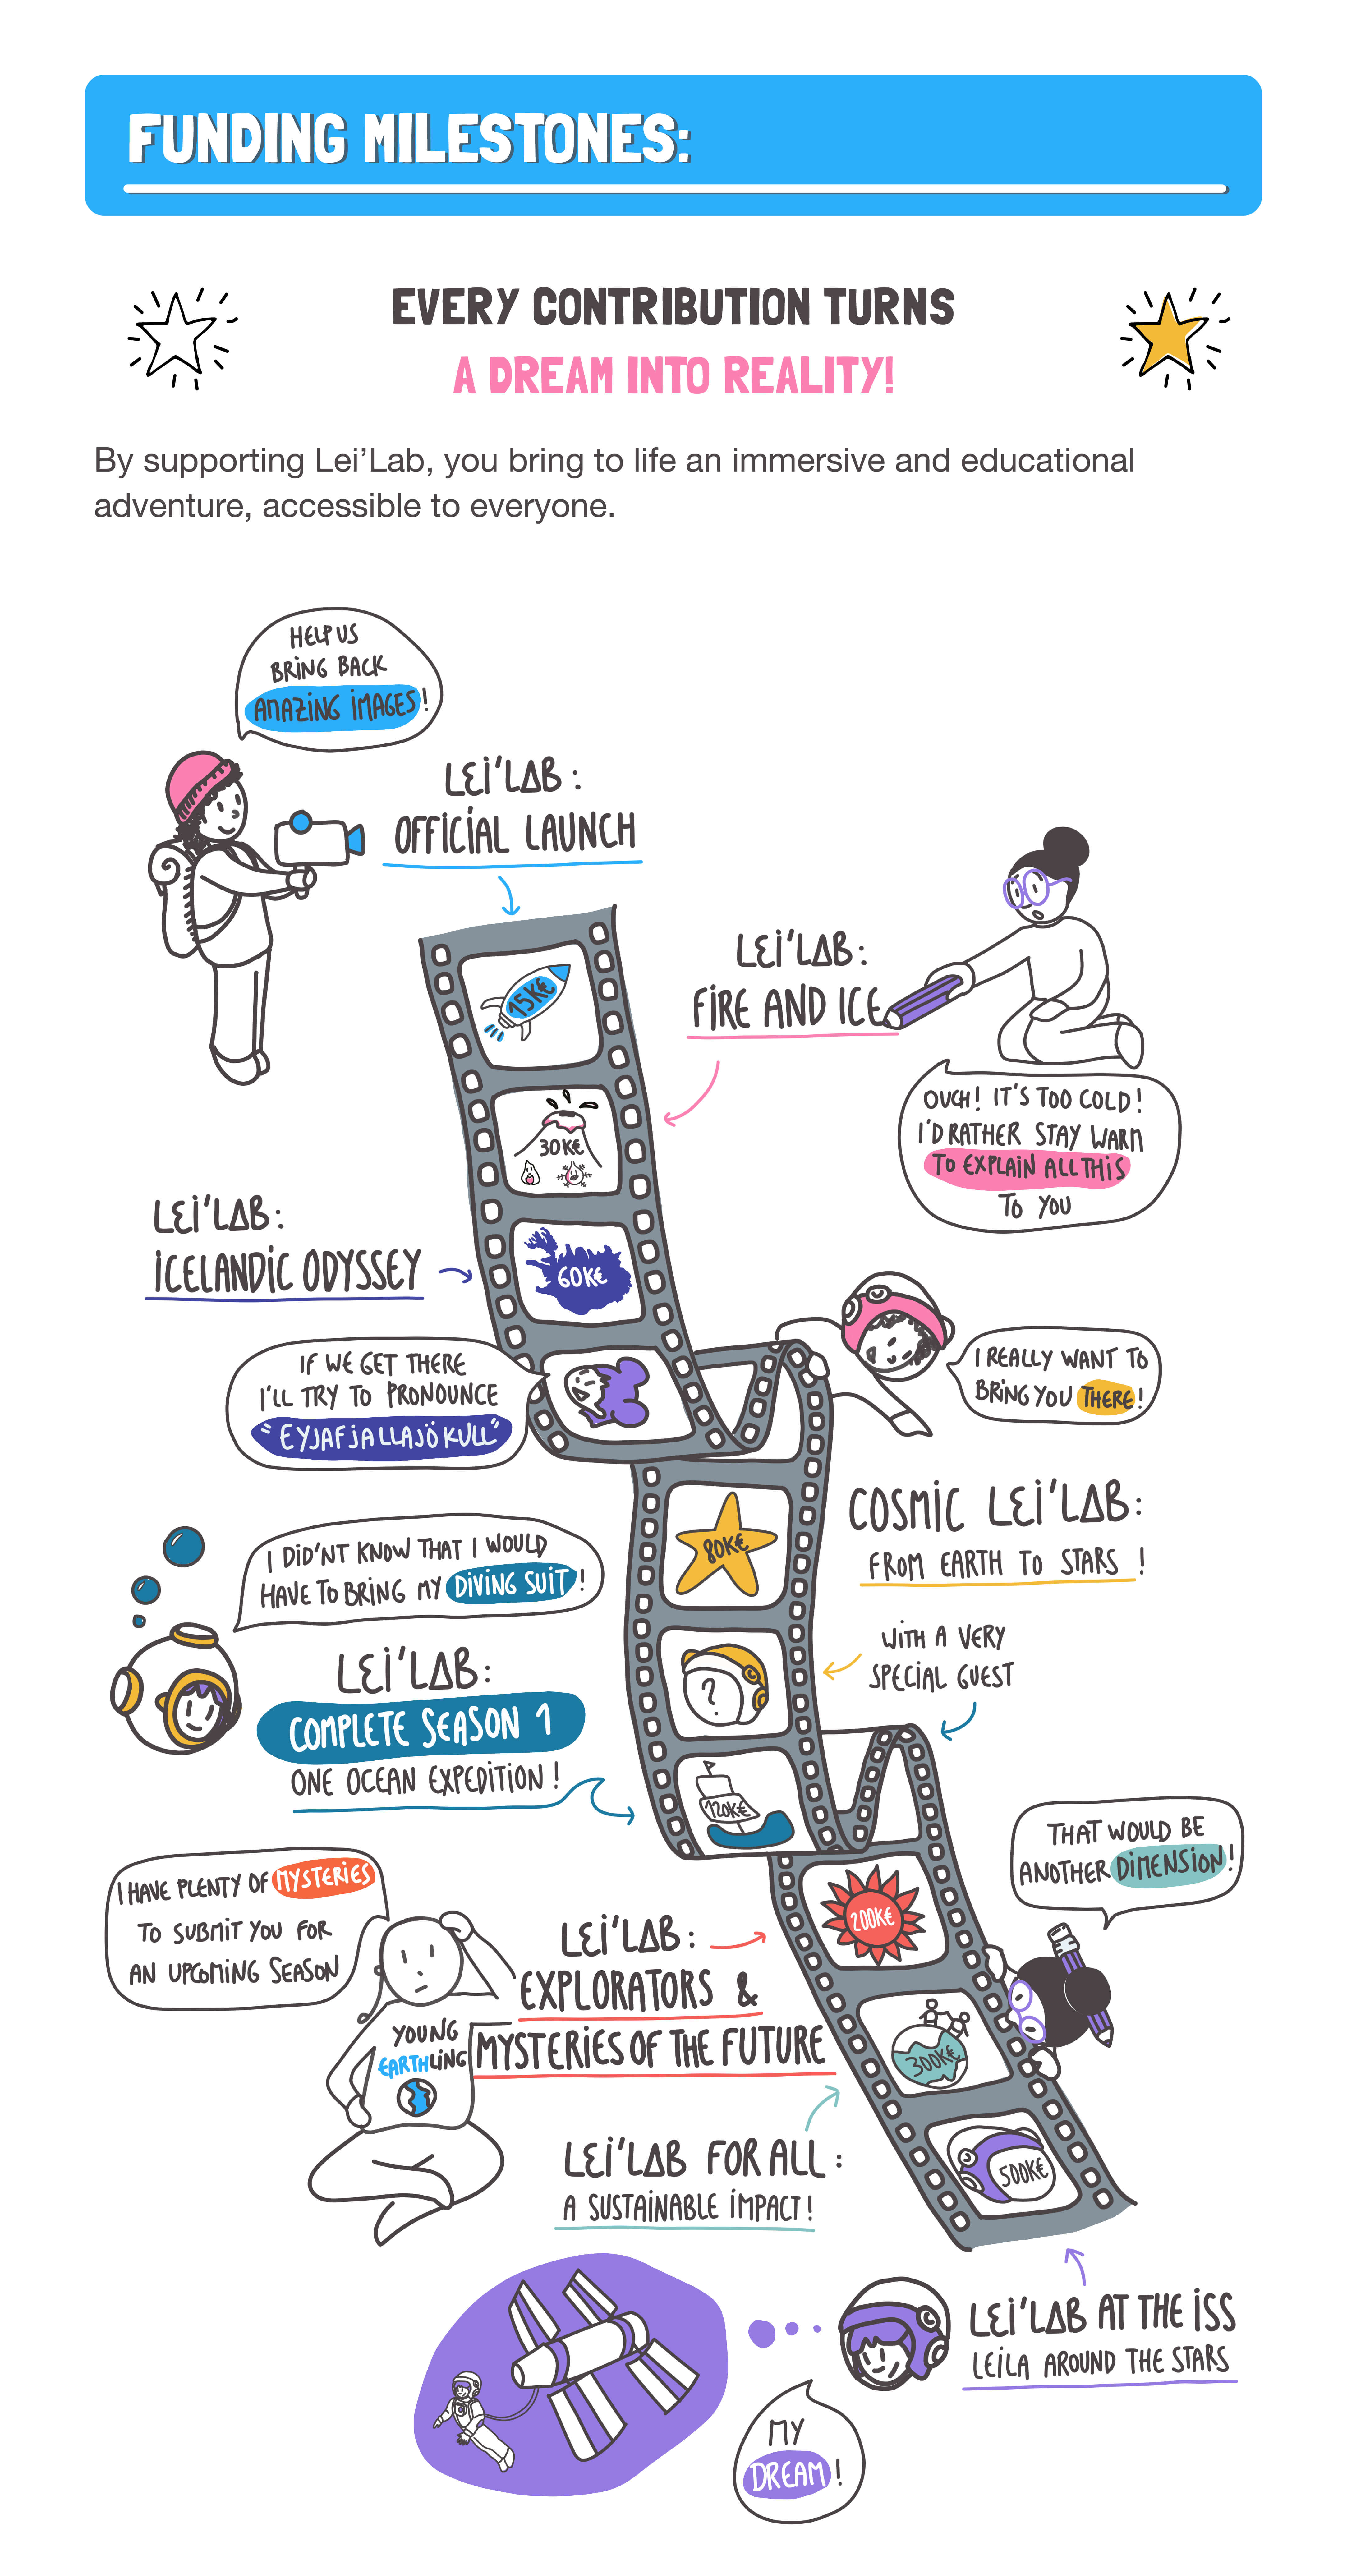 FUNDING MILESTONES:
EVERY CONTRIBUTION TURNS
A DREAM INTO REALITY!
By supporting Lei’Lab, you bring to life an immersive and educational
adventure, accessible to everyone.
HELP US
BRING BACK
AMAZING IMAGES!
LEI'LAB:
OFFICIAL LAUNCH
15K€
LEI'LAB:
FIRE AND ICE
30K€
OUCH! IT'S TOO COLD!
I'D RATHER STAY WARM
TO EXPLAIN ALL THIS
TO YOU
LEI'LAB:
ICELANDIC ODYSSEY
60K€
IF WE GET THERE
I'LL TRY TO PRONOUNCE
"EYJAFJALLAJÖKULL"
I REALLY WANT TO
BRING YOU THERE!
COSMIC LEI'LAB:
FROM EARTH TO STARS !
80K€
I DID'NT KNOW THAT I WOULD
HAVE TO BRING MY DIVING SUIT!
WITH A VERY
SPECIAL GUEST
?
LEI'LAB:
COMPLETE SEASON 1
ONE OCEAN EXPEDITION!
120K€
THAT WOULD BE
ANOTHER DIMENSION!
I HAVE PLENTY OF MYSTERIES
TO SUBMIT YOU FOR
AN UPCOMING SEASON
200K€
LEI'LAB:
EXPLORATORS &
MYSTERIES OF THE FUTURE
YOUNG
EARTHLING
300K€
LEI'LAB FOR ALL:
A SUSTAINABLE IMPACT!
500K€
LEI'LAB AT THE ISS
LEILA AROUND THE STARS
MY
DREAM!